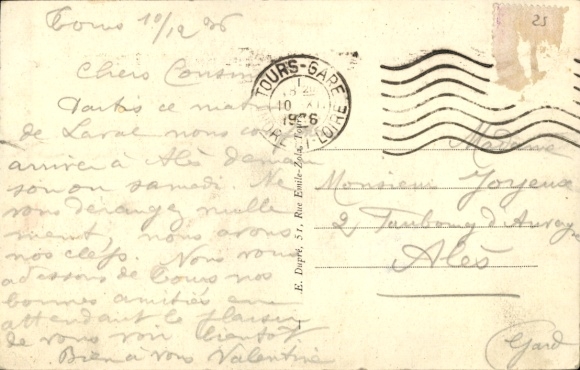 Tours 10/12 36
Chers Cousins
Partis ce matin
de Laval nous
arriver à Alès demain
soir ou samedi. Ne
vous dérangez nulle
ment, nous avons
nos clefs. Nous vous
adessons de Tours nos
bonnes amitiés en
attendant le plaisir
de vous voir bientôt
Bien à vous Valentine
TOURS-GARE
10 XII
1936
INDRE-ET-LOIRE
E. Dupré, 51, Rue Emile-Zola, Tours
Madame
Monsieur Joyeux
2 Faubourg d'Auvergne
Alès
Gard
25